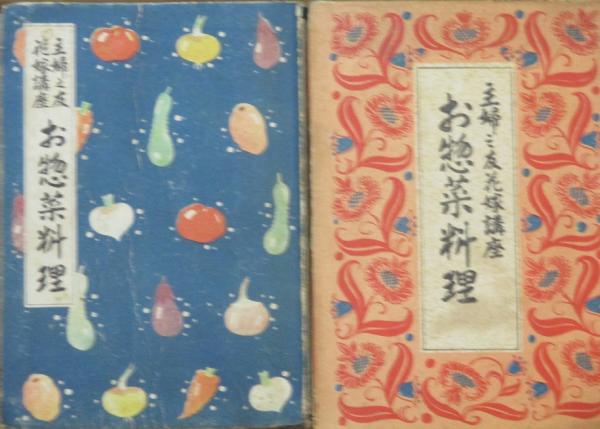 主婦之友
花嫁講座
お惣菜料理
主婦之友花嫁講座
お惣菜料理